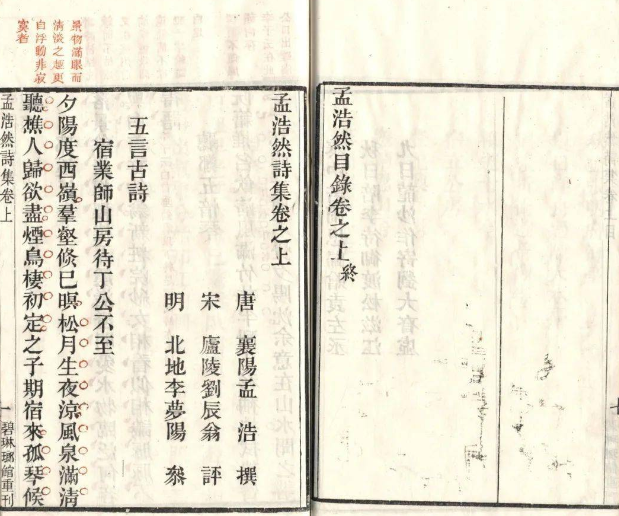 孟浩然目錄卷之上 終
孟浩然詩集卷之上
唐 襄陽孟 浩 撰
宋 廬陵劉辰翁 評
明 北地李夢陽 叅
五言古詩
宿業師山房待丁公不至
景物滿眼而
清淡之趣更
自浮動非寂
寞者
夕陽度西嶺羣壑倐已暝松月生夜涼風泉滿清
聽樵人歸欲盡煙鳥棲初定之子期宿來孤琴候
孟浩然詩集卷上 一 碧琳瑯館重刊